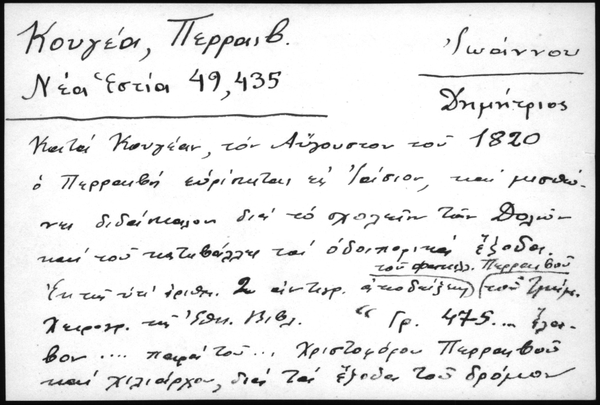 Κουγέα, Περραιβ.
Ἰωάννου
Νέα Ἑστία 49,435
Δημήτριος
Κατά Κουγέαν, τόν Αὔγουστον τοῦ 1820
ὁ Περραιβή εὑρίσκεται εἰς Ἰάσιον, καί μισθώ-
νει διδάσκαλον διά τό σχολεῖον τῶν Δολῶν
καί τοῦ καταβάλλει τά ὁδοιπορικά ἔξοδα.
τοῦ φακελ. Περραιβοῦ
Ἐκ τῆς ὑπ' ἀριθμ. 2 ἀντιγρ. ἀποδείξης (τοῦ Τμήμ.
Χειρογρ. τῆς Ἐθν. Βιβλ. " Γρ. 475... ἔλα-
βον .... παρά τοῦ... Χριστοφόρου Περραιβοῦ
καί χιλιάρχου, διά τά ἔξοδα τοῦ δρόμου